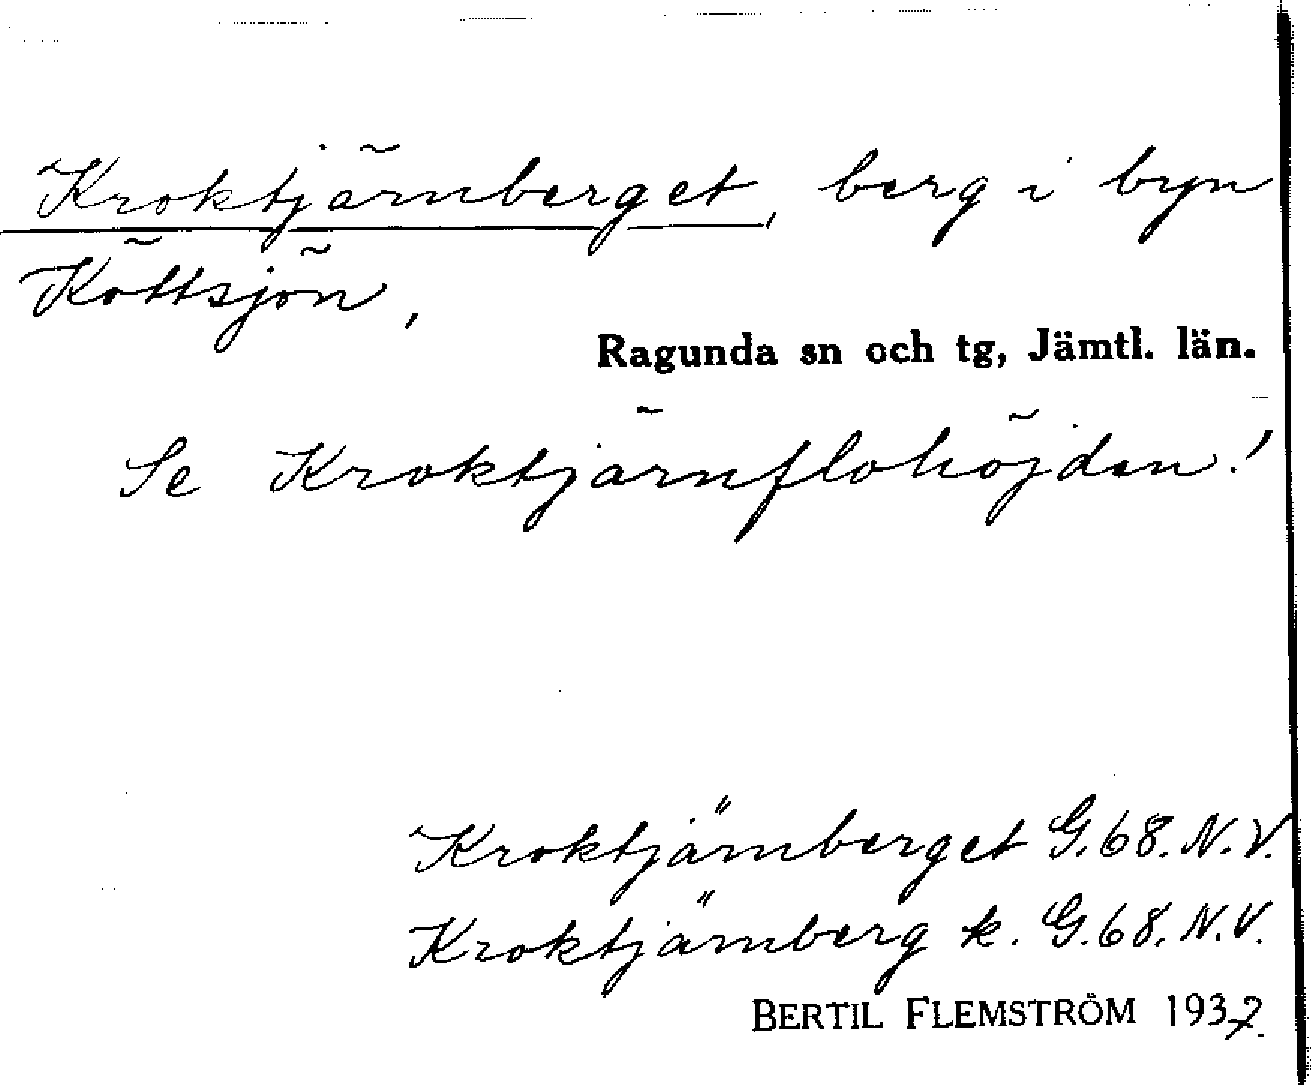 Kroktjärnberget, berg i byn
Köttsjön,
Ragunda sn och tg, Jämtl. län.
Se Kroktjärnflohöjden!
Kroktjärnberget G.68.N.V.
Kroktjärnberg k. G.68.N.V.
BERTIL FLEMSTRÖM 1937.